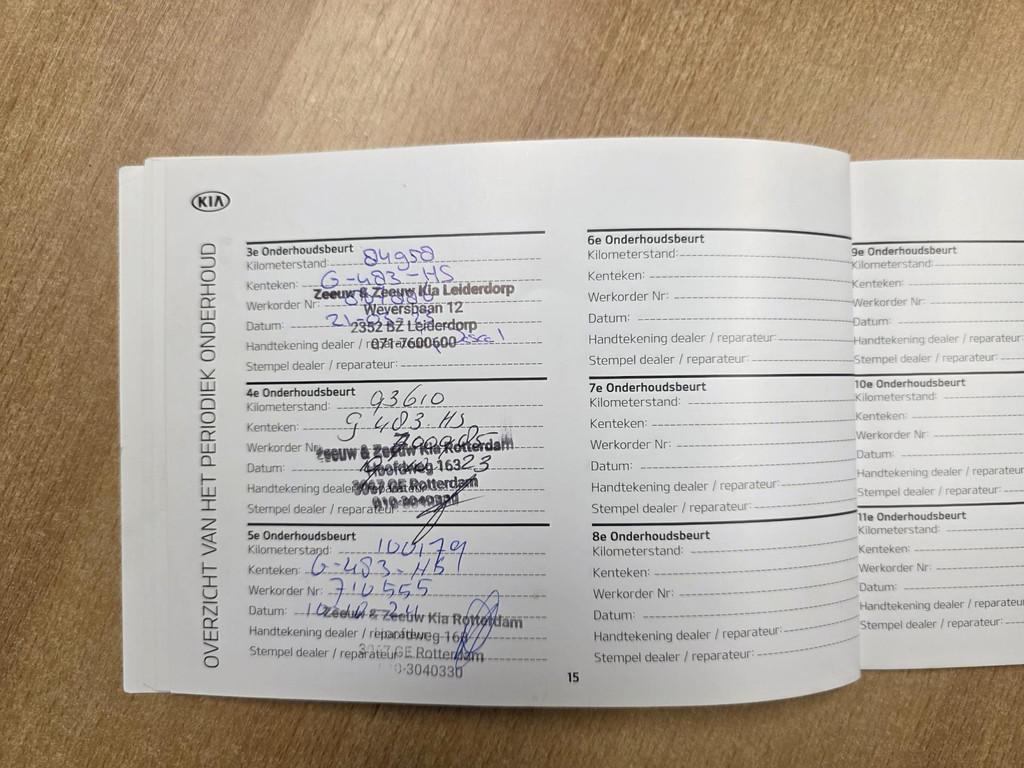 KIA
OVERZICHT VAN HET PERIODIEK ONDERHOUD
3e Onderhoudsbeurt
Kilometerstand: 84958
Kenteken: G-483-HS
Werkorder Nr:
Datum: 21-
Handtekening dealer /
Stempel dealer / reparateur:
Zeeuw & Zeeuw Kia Leiderdorp
Weversbaan 12
2352 BZ Leiderdorp
071-7600600
4e Onderhoudsbeurt
Kilometerstand: 93610
Kenteken: G 483.HS
Werkorder Nr:
Datum: 23
Handtekening dealer
Stempel dealer / reparateur:
Zeeuw & Zeeuw Kia Rotterdam
Hoofdweg 16
3067 GE Rotterdam
010-3040330
5e Onderhoudsbeurt
Kilometerstand: 100,179
Kenteken: G-483-HS
Werkorder Nr: 710555
Datum:
Handtekening dealer / reparateur:
Stempel dealer / reparateur:
Zeeuw & Zeeuw Kia Rotterdam
3067 GE Rotterdam
010-3040330
6e Onderhoudsbeurt
Kilometerstand:
Kenteken:
Werkorder Nr:
Datum:
Handtekening dealer / reparateur:
Stempel dealer / reparateur:
7e Onderhoudsbeurt
Kilometerstand:
Kenteken:
Werkorder Nr:
Datum:
Handtekening dealer / reparateur:
Stempel dealer / reparateur:
8e Onderhoudsbeurt
Kilometerstand:
Kenteken:
Werkorder Nr:
Datum:
Handtekening dealer / reparateur:
Stempel dealer / reparateur:
15
9e Onderhoudsbeurt
Kilometerstand:
Kenteken:
Werkorder Nr:
Datum:
Handtekening dealer / reparateur:
Stempel dealer / reparateur:
10e Onderhoudsbeurt
Kilometerstand:
Kenteken:
Werkorder Nr:
Datum:
Handtekening dealer / reparateur:
Stempel dealer / reparateur:
11e Onderhoudsbeurt
Kilometerstand:
Kenteken:
Werkorder Nr:
Datum:
Handtekening dealer / reparateur
Stempel dealer / reparateur: